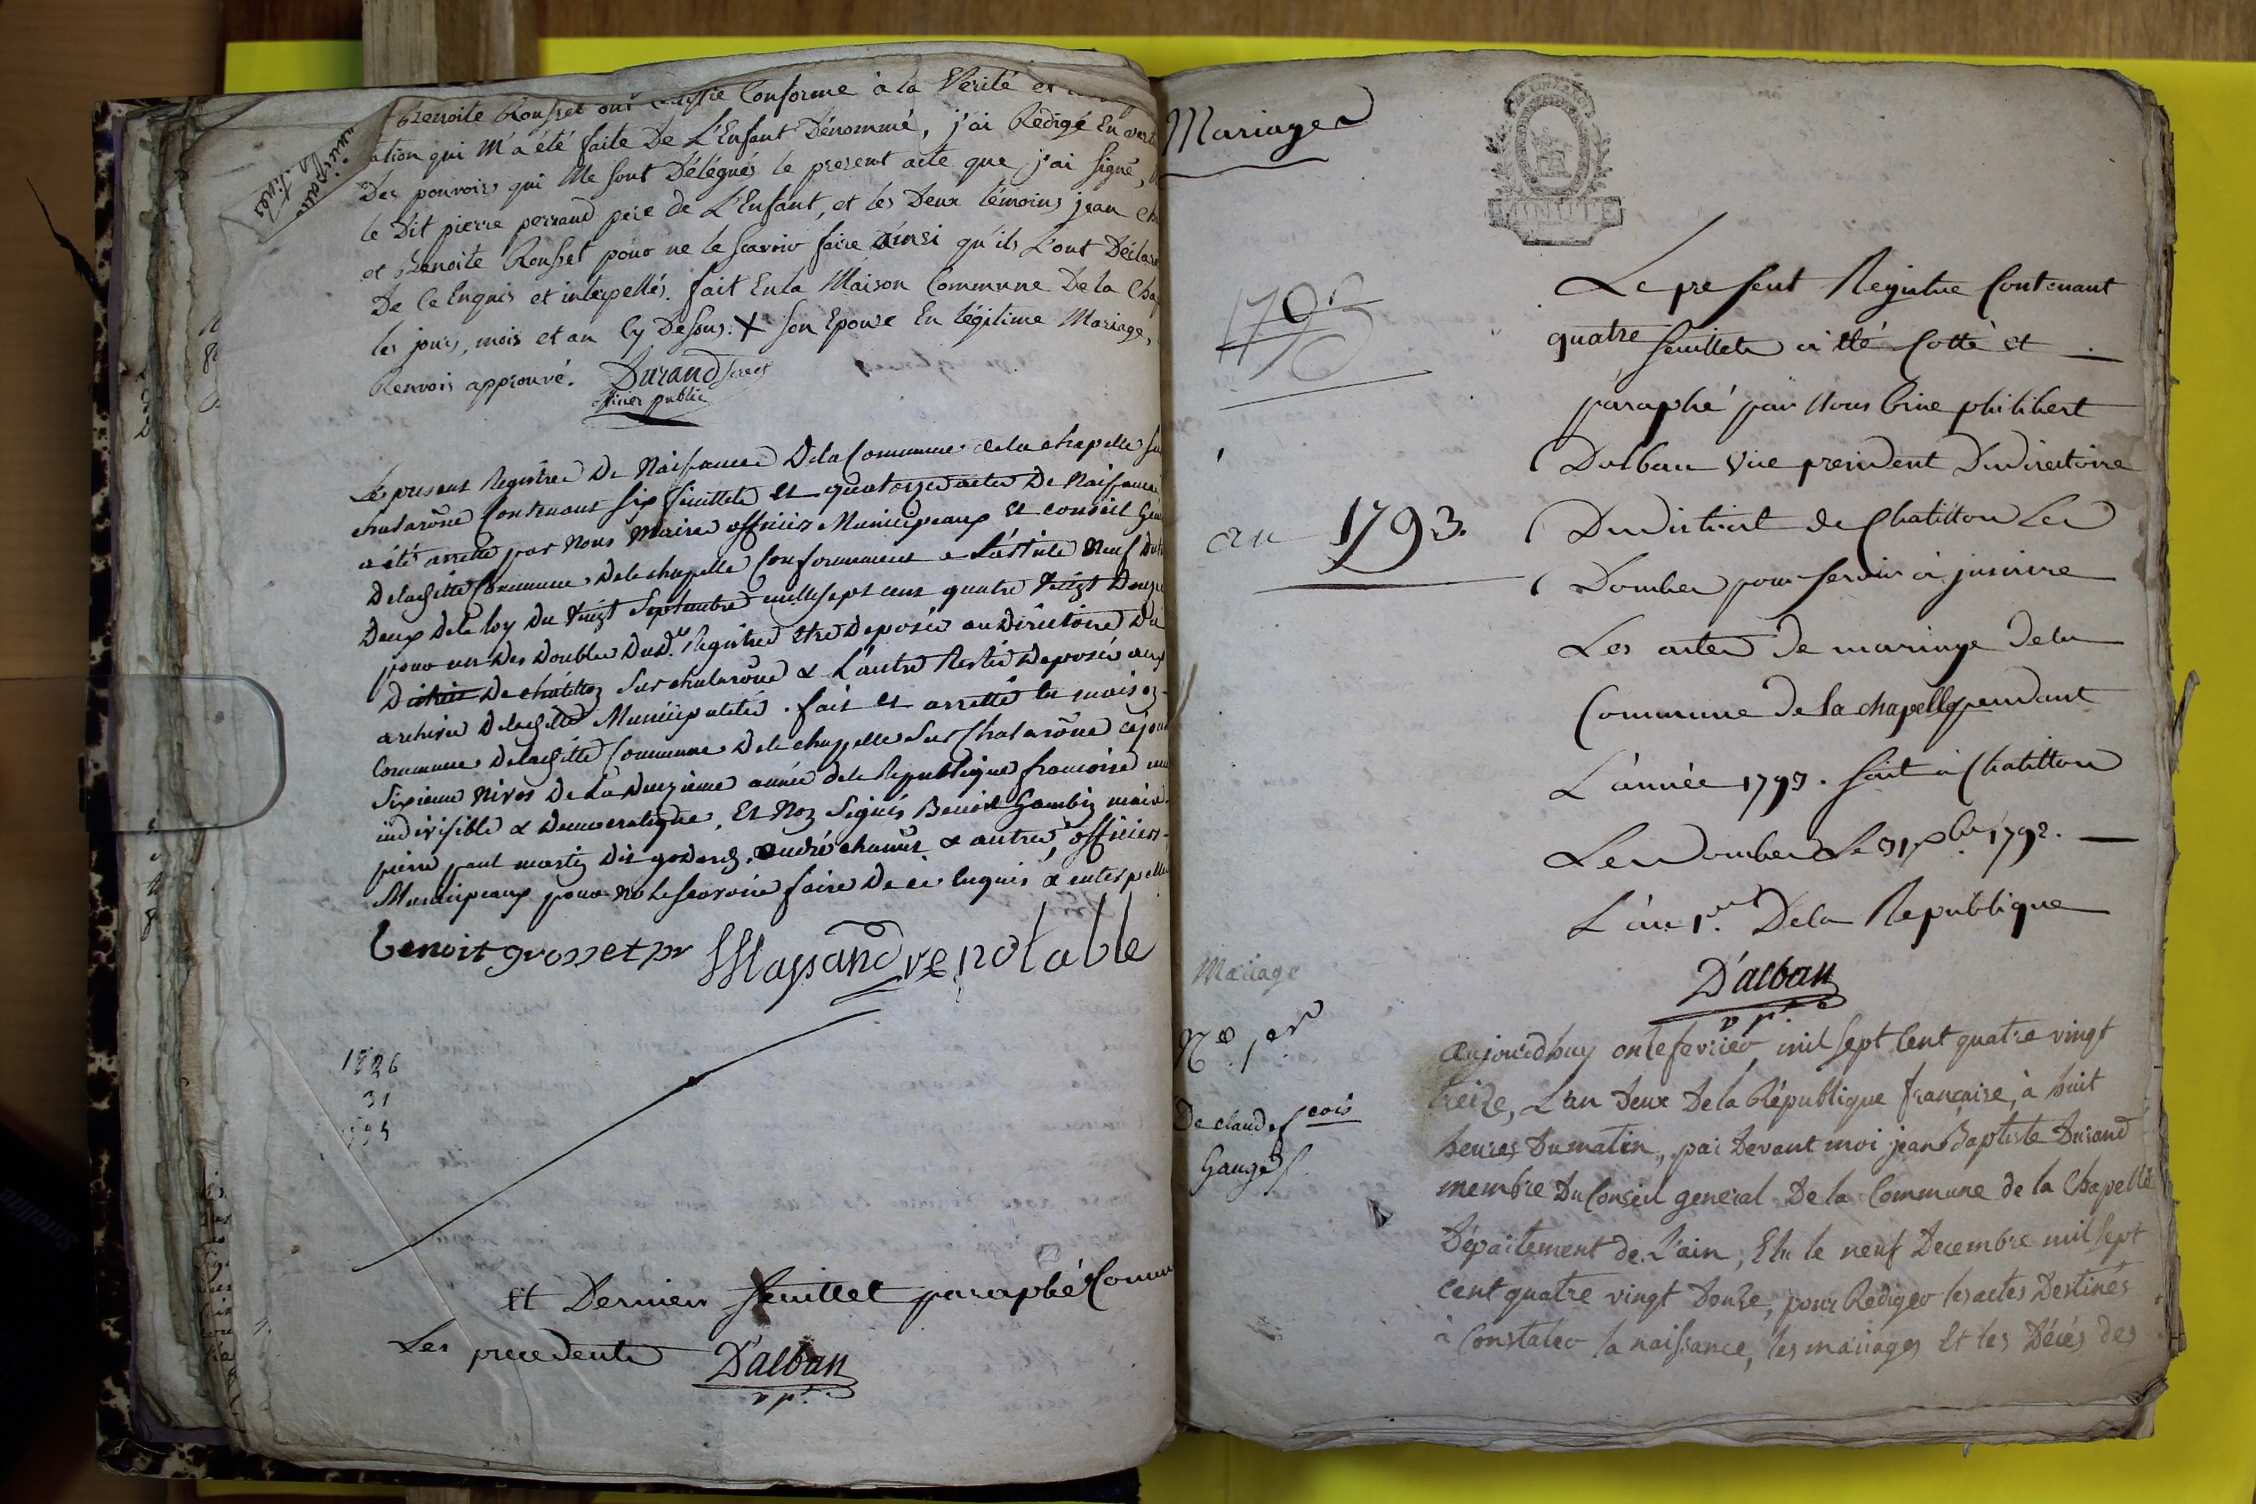 Benoite Rousset ont Conforme à la Vérité et
ation qui M'a été faite De L'Enfant Dénommé, j'ai Rédigé En
Des pouvoirs qui Me sont Délégués le present acte que j'ai signé,
le Dit pierre perraud pere de L'Enfant, et les Deux témoins jean
et Benoite Rousset pour ne le sçavoir faire ainsi qu'ils L'ont Déclaré
De Ce Enquis et interpellés. fait En la Maison Commune De la
les jours, mois et an Cy Dessus. X son Epouse En légitime Mariage,
Renvois approuvé. Durand
officier public
Le present Registre De Naissance De la Commune de la chapelle
chalarône Contenant six feuillets et quatorze actes De Naissance
a été arretté par Nous Maire officiers Municipeaux et conseil
De la ditte Commune De la chapelle Conformement a L'article Neuf
Deux De la loy Du Vingt Septembre mille sept cent quatre Vingt Douze
pour un Des Doubles Dud. Registre etre Deposé au Directoire Du
District De châtillon Sur chalarône & L'autre Rester Deposé aux
archives De la ditte Municipalité. fait et arretté en maison
Commune De la ditte Commune De la chapelle Sur Chalarône ce jour
Sixieme Nivos De La Deuzieme année de la Republique francoise
indivisible & Democratique. Et Non Signés Benoit Gambin maire
pierre paul martin Dit godard, andré & autres officiers
Municipeaux pour ne le scavoir faire De ce Enquis & interpellé
Benoit grosset pr notable
1826
31
et Dernier feuillet paraphé Comme
Les precedents D'alban
v pt.
Mariages
Le present Registre Contenant
quatre feuillets a été Cotté et
paraphé par Nous Cine philibert
Dalban Vice president Du directoire
an 1793.
Du District de Chatillon Les
Dombes pour servir à inscrire
Les actes de mariage de la
Commune de la chapelle pendant
L'année 1793. fait à Chatillon
Les Dombes Le 31 Xbre 1792.
L'an 1er De la Republique
D'alban
v pt.
Mariage
No. 1er
De claude fcois
Gauge
aujourdhuy onze fevrier mil sept Cent quatre vingt
treize, L'an Deux De la République francaise, à huit
heures Du matin, par Devant moi jean Baptiste Durand
membre Du Conseil general De la Commune de la Chapelle
Département de L'ain, Elu le neuf Decembre mil sept
cent quatre vingt Douze, pour Rediger les actes Destinés
à Constater la naissance, les mariages Et les Décés des